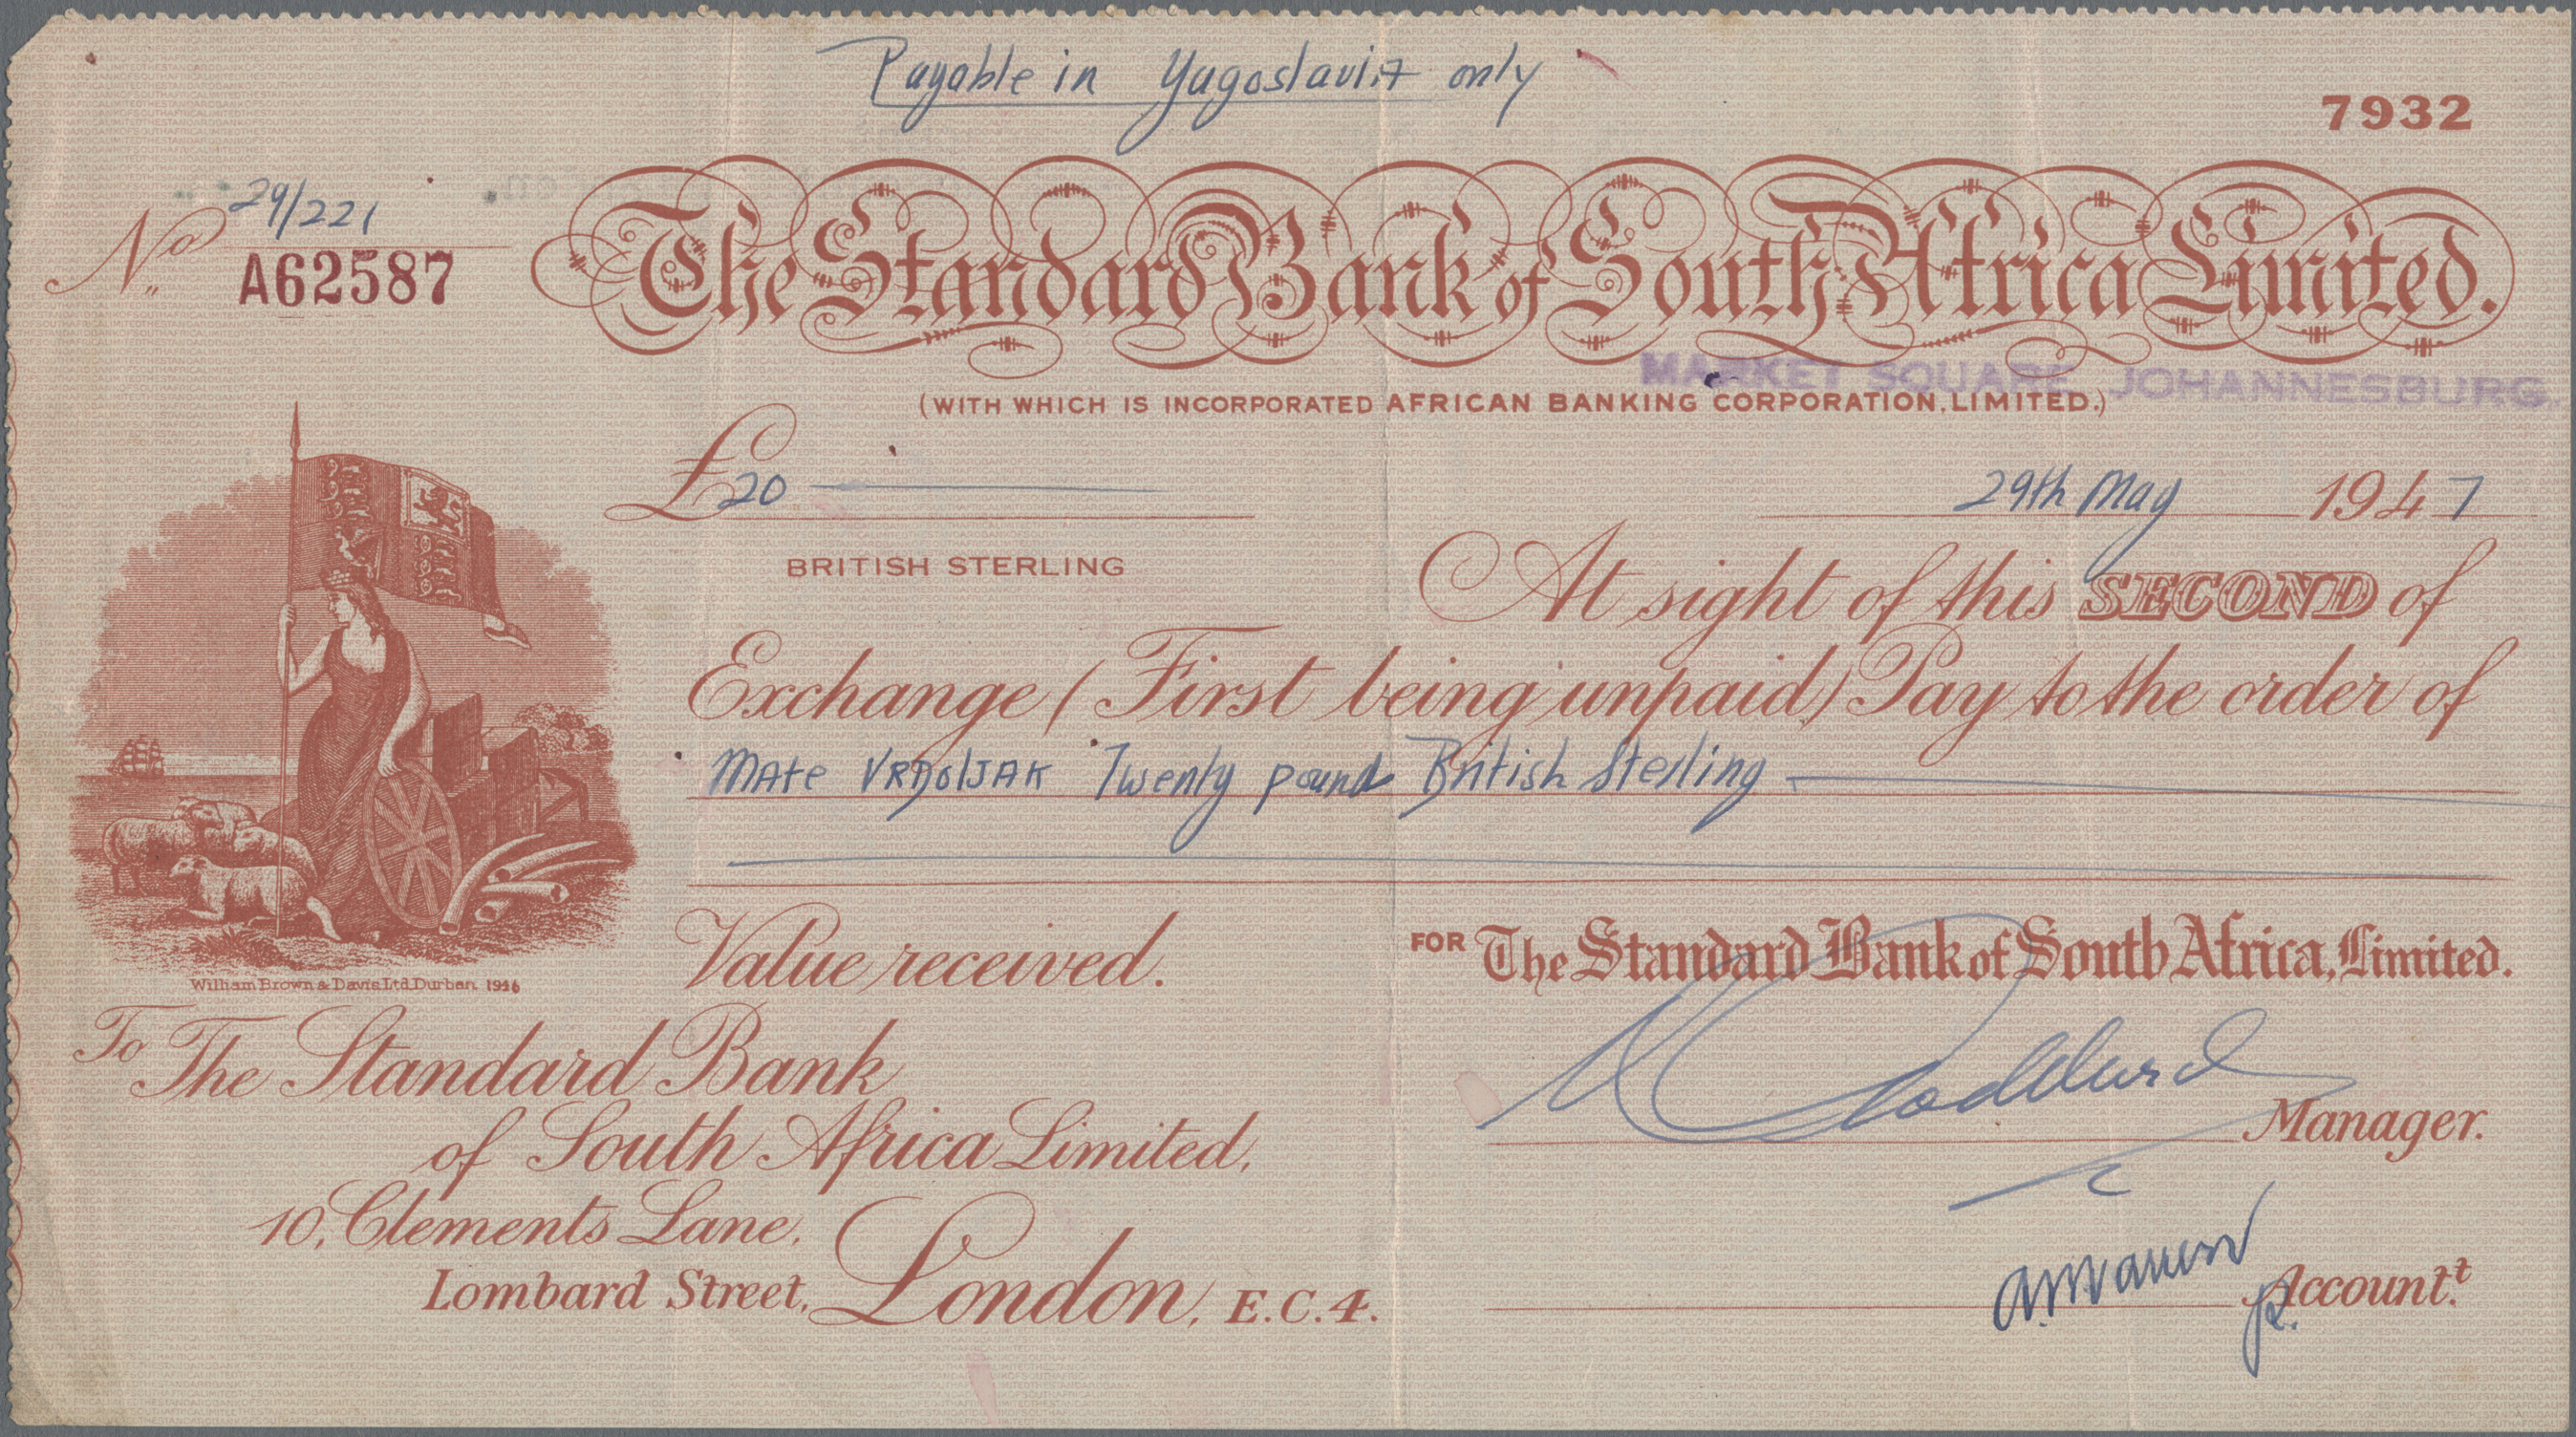 Payable in Yugoslavia only
7932
No. 29/221
A62587
The Standard Bank of South Africa Limited.
MARKET SQUARE, JOHANNESBURG.
(WITH WHICH IS INCORPORATED AFRICAN BANKING CORPORATION, LIMITED.)
£20
29th May 1947
BRITISH STERLING
At sight of this SECOND of
Exchange (First being unpaid) Pay to the order of
Mate VRDOLJAK Twenty pound British Sterling
William Brown & Davis Ltd. Durban. 1946
Value received.
FOR The Standard Bank of South Africa, Limited.
To The Standard Bank
of South Africa Limited,
Manager.
10, Clements Lane,
Lombard Street, London, E.C.4.
Account.t